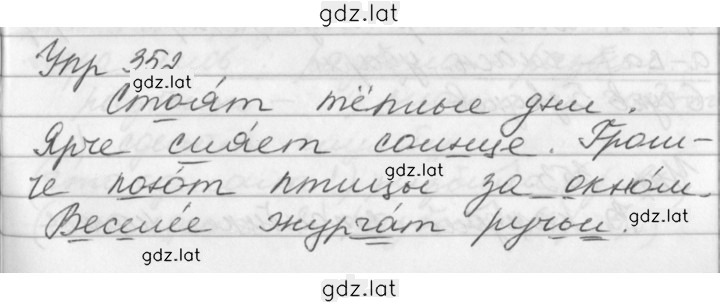 gdz.lat
Упр 352
gdz.lat
Стоят тёплые дни.
Ярче сияет солнце. Гром-
gdz.lat
че поют птицы за окном.
gdz.lat
Веселее журчат ручьи.
gdz.lat
gdz.lat